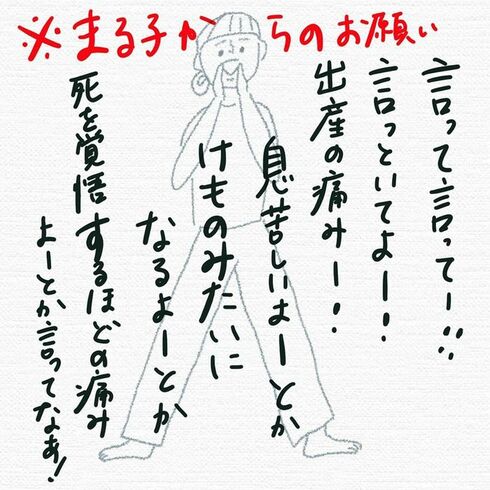 ※まる子からのお願い
言って、言ってー!!
言っといてよー!
出産の痛みー!
息苦しいよーとか
けものみたいに
なるよーとか
死を覚悟するほどの痛み
よーとか言ってなぁ!